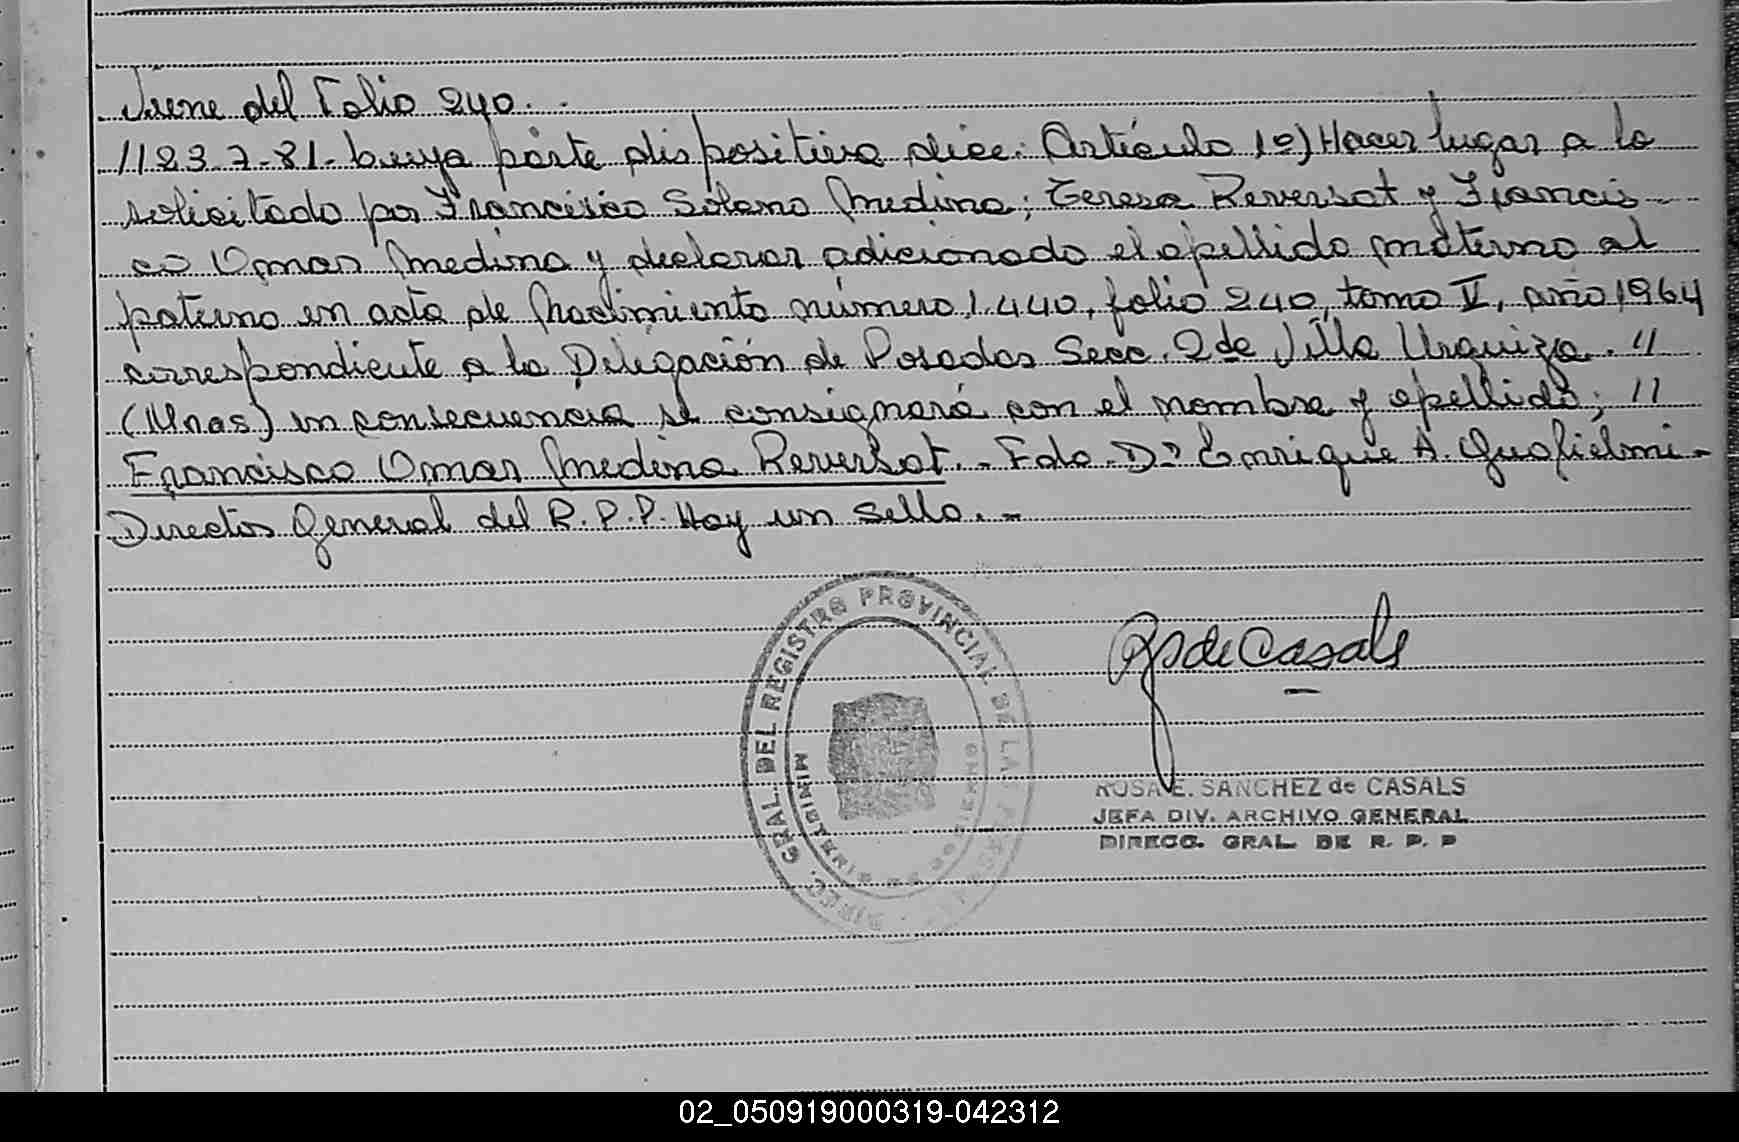 Viene del Folio 240. -
//23.7-81- Cuya parte dispositiva dice: Artículo 1º) Hacer lugar a lo
solicitado por Francisco Solano Medina; Teresa Reversat y Francis-
co Omar Medina y declarar adicionado el apellido materno al
paterno en acta de Nacimiento número 1.440, folio 240, tomo V, año 1964
correspondiente a la Delegación de Posadas Secc. 2da Villa Urquiza. //
(Mnes) en consecuencia se consignará con el nombre y apellido; //
Francisco Omar Medina Reversat. - Fdo. Dr Enrique A. Guglielmi -
Director General del R.P.P. Hay un sello. -
DIREC. GRAL. DEL REGISTRO PROVINCIAL DE LAS PERSONAS
MINISTERIO DE GOBIERNO
RS de Casals
ROSA E. SANCHEZ de CASALS
JEFA DIV. ARCHIVO GENERAL
DIRECC. GRAL. DE R. P. P
02_050919000319-042312